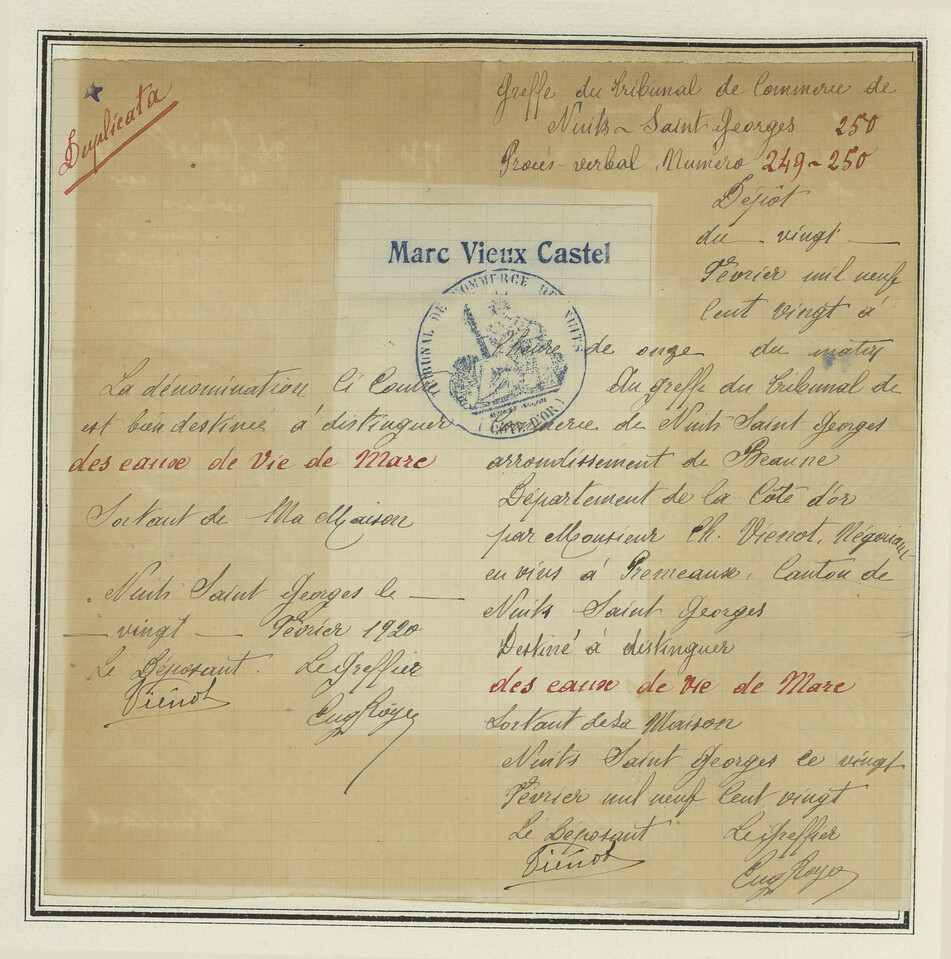 Duplicata
Greffe du tribunal de Commerce de
Nuits-Saint Georges 250
Procès-verbal, Numéro 249-250
Dépôt
du vingt
Février mil neuf
Cent vingt à
l'heure de onze du matin
Marc Vieux Castel
TRIBUNAL DE COMMERCE DE NUITS
(CÔTE D'OR)
La dénomination Ci Contre
est bien destinée à distinguer
des eaux de Vie de Marc
Sortant de Ma Maison
Nuits Saint Georges le
vingt Février 1920
Le Déposant. Le Greffier
Viénot Eug Royer
Au greffe du tribunal de
Commerce de Nuits Saint Georges
arrondissement de Beaune
Département de la Côte d'or
par Monsieur Ch. Vienot, Négociant
en vins à Premeaux, Canton de
Nuits Saint Georges
Destiné à distinguer
des eaux de Vie de Marc
Sortant de Sa Maison
Nuits Saint Georges ce vingt
Février mil neuf Cent vingt
Le Déposant Le Greffier
Viénot Eug Royer